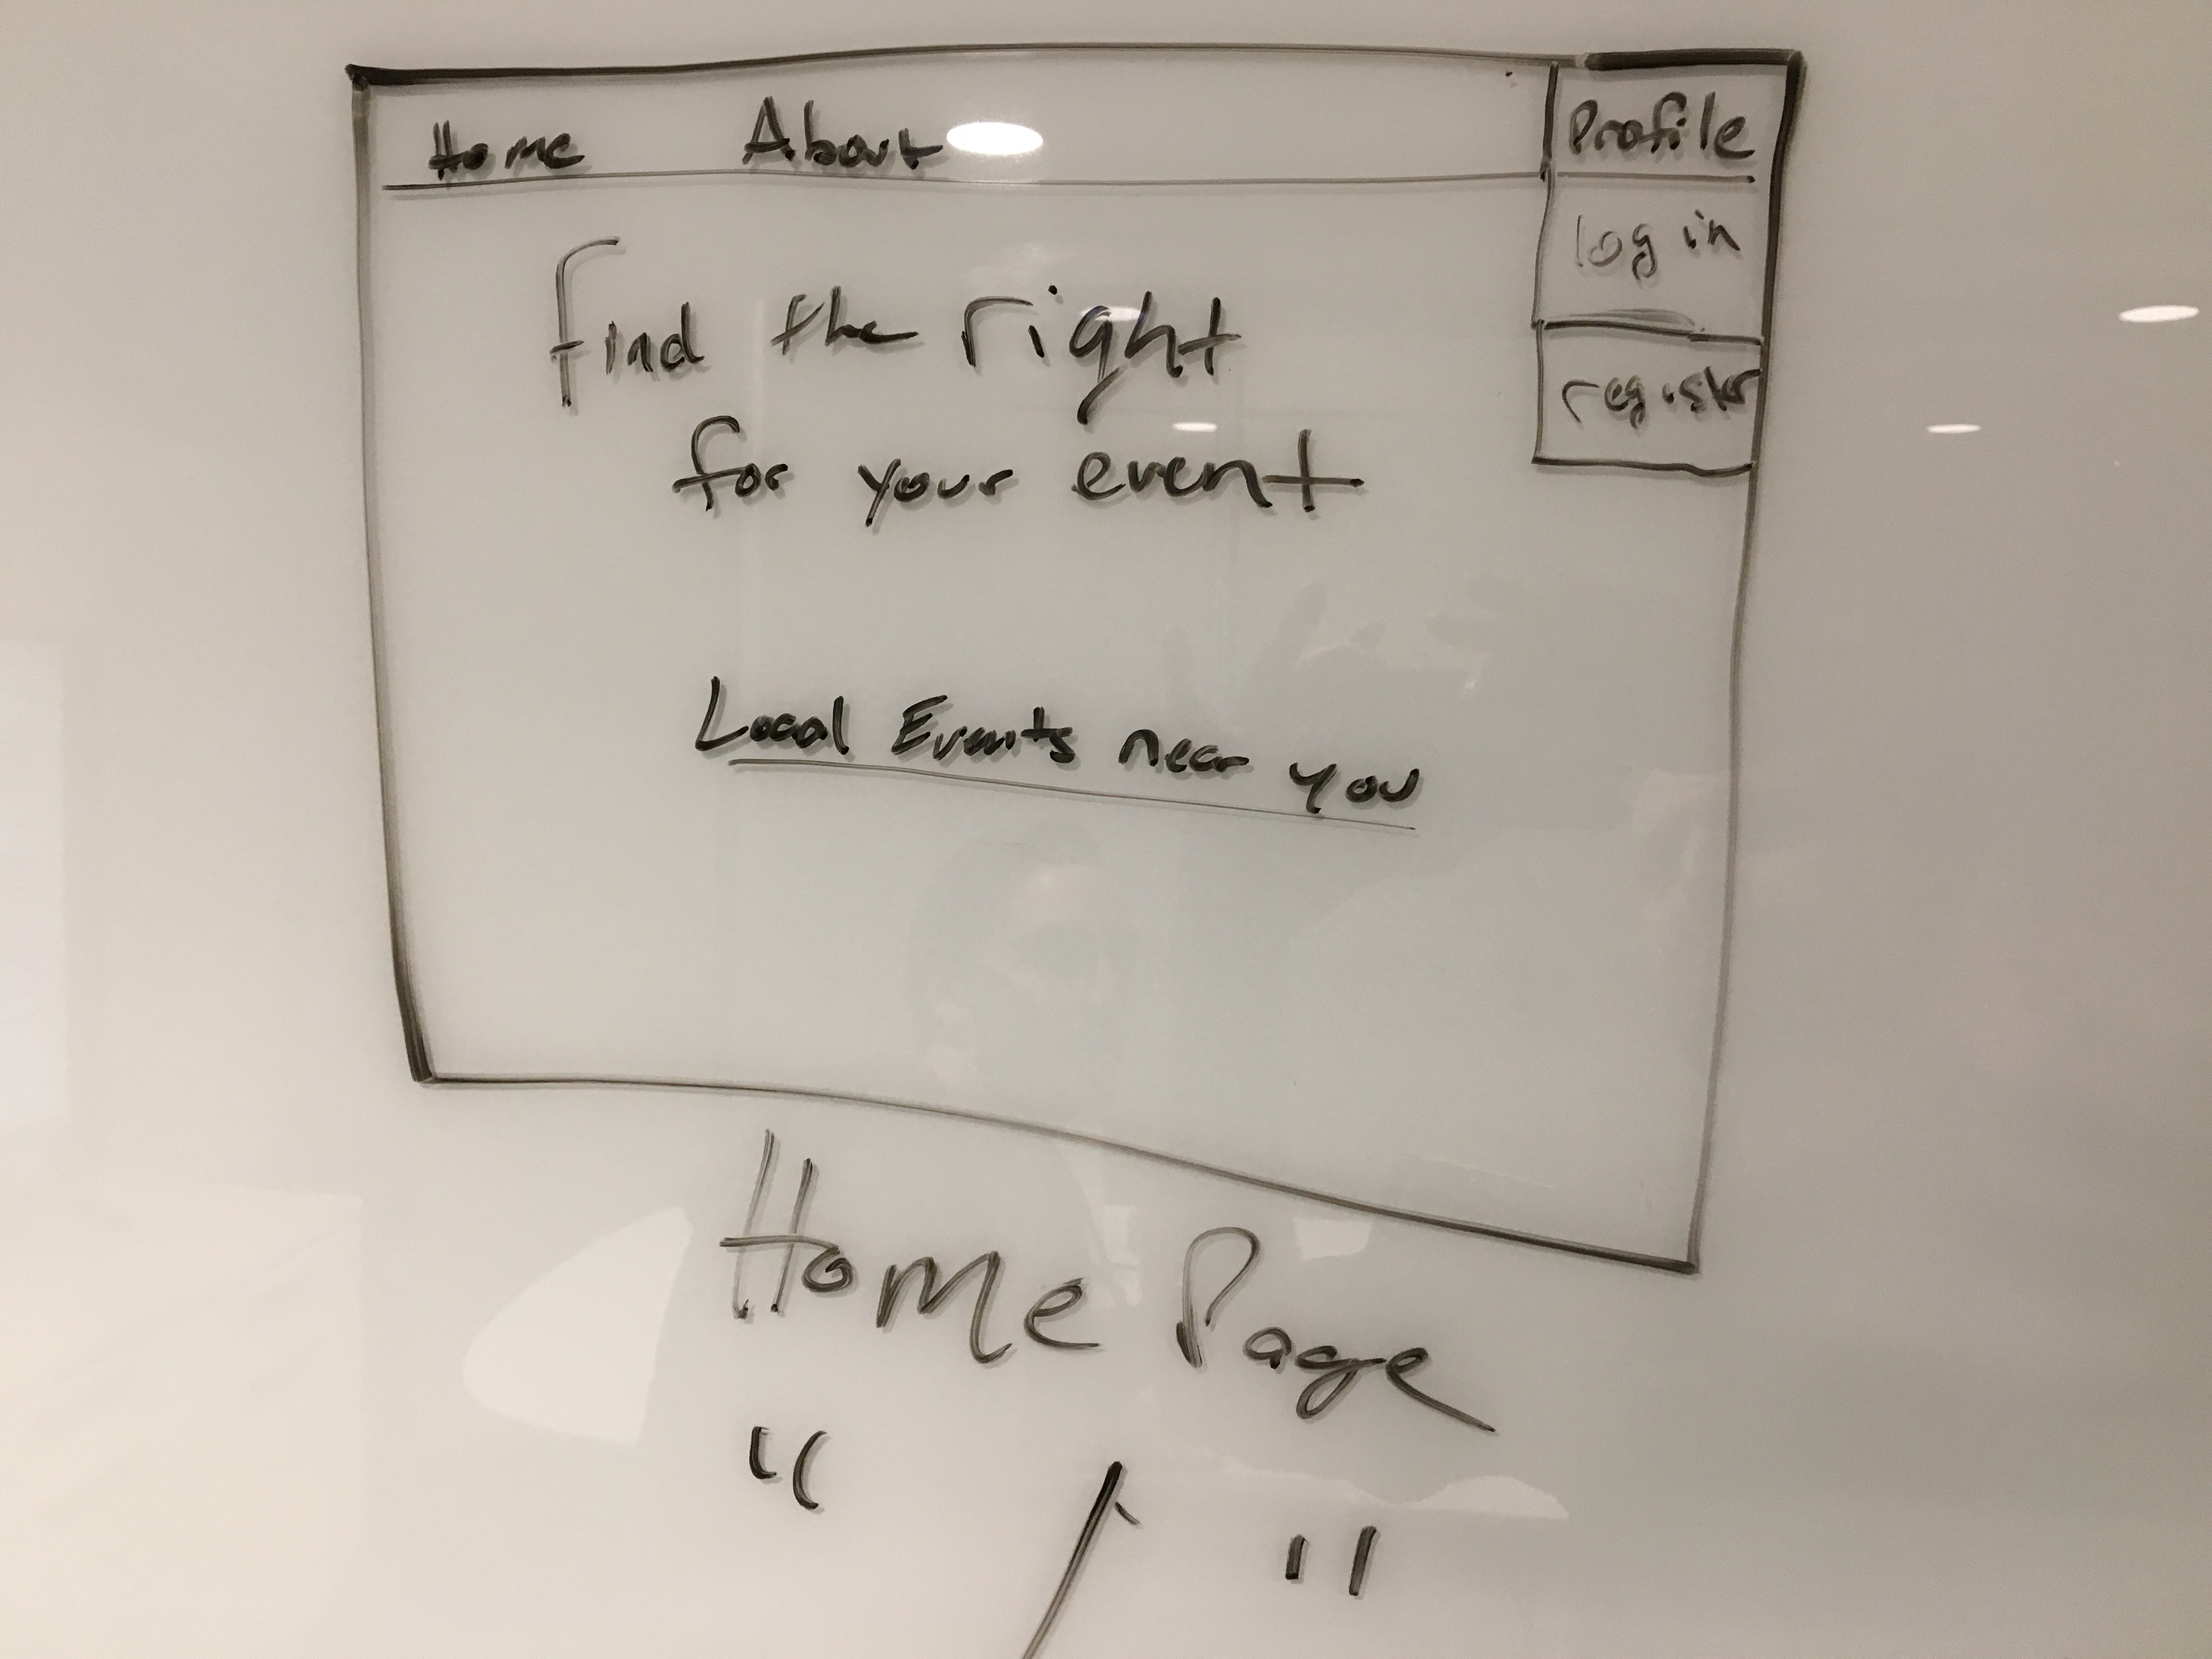 Home About Profile
log in
register
find the right
for your event
Local Events near you
Home Page
" / "